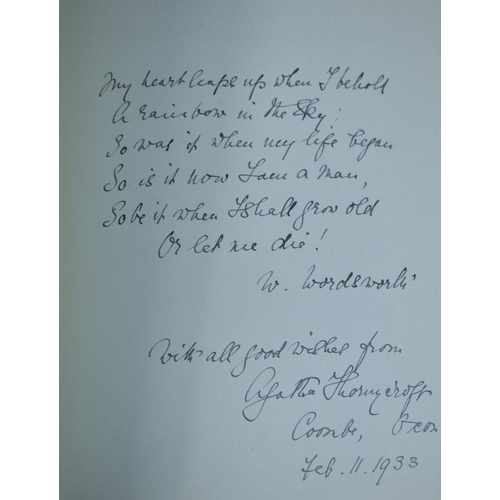 My heart leaps up when I behold
A rainbow in the Sky:
So was it when my life began
So is it now I am a man,
So be it when I shall grow old
Or let me die!
W. Wordsworth
With all good wishes from
Agatha Thornycroft
Coombe, Oxon
Feb. 11. 1933